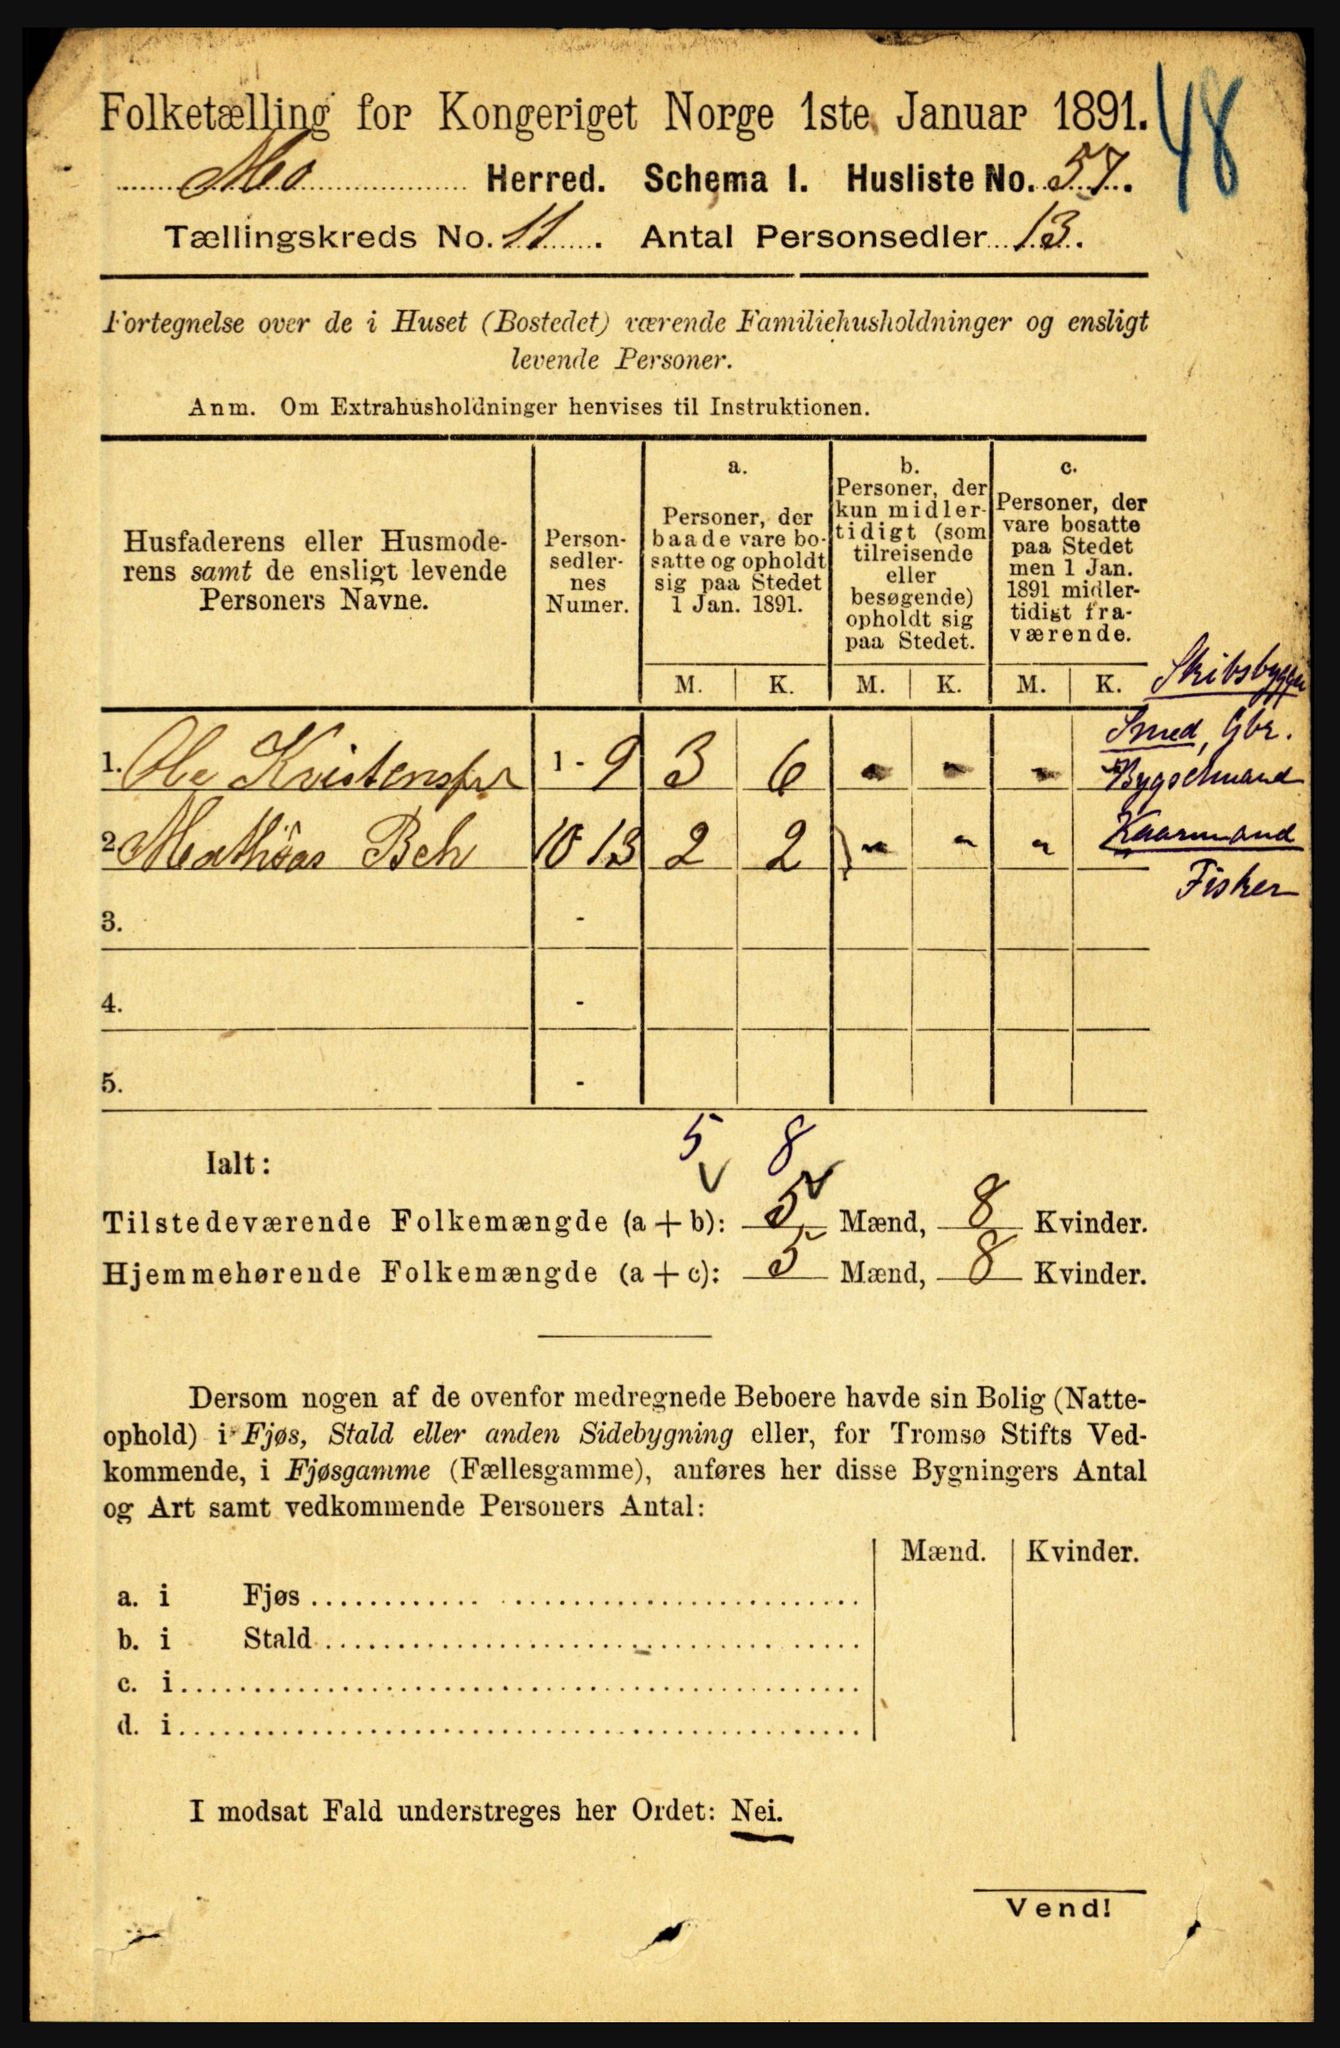 Folketælling for Kongeriget Norge 1ste Januar 1891.
48
Mo Herred. Schema I. Husliste No. 57.
Tællingskreds No. 11. Antal Personsedler 13.
Fortegnelse over de i Huset (Bostedet) værende Familiehusholdninger og ensligt
levende Personer.
Anm. Om Extrahusholdninger henvises til Instruktionen.
Husfaderens eller Husmode-
rens samt de ensligt levende
Personers Navne.
Person-
sedler-
nes
Numer.
a.
Personer, der
baade vare bo-
satte og opholdt
sig paa Stedet
1 Jan. 1891.
b.
Personer, der
kun midler-
tidigt (som
tilreisende
eller
besøgende)
opholdt sig
paa Stedet.
c.
Personer, der
vare bosatte
paa Stedet
men 1 Jan.
1891 midler-
tidigt fra-
værende.
M. K. M. K. M. K.
Skibsbygger
Smed, Gbr.
1. Ole Kristensen 1 - 9 3 6 - - - Bygselmand
2. Mathias Beh 10 13 2 2 - - - Kaarmand
Fisker
3. -
4. -
5. -
5 8
Ialt:
Tilstedeværende Folkemængde (a + b): 5 Mænd, 8 Kvinder.
Hjemmehørende Folkemængde (a + c): 5 Mænd, 8 Kvinder.
Dersom nogen af de ovenfor medregnede Beboere havde sin Bolig (Natte-
ophold) i Fjøs, Stald eller anden Sidebygning eller, for Tromsø Stifts Ved-
kommende, i Fjøsgamme (Fællesgamme), anføres her disse Bygningers Antal
og Art samt vedkommende Personers Antal:
Mænd. Kvinder.
a. i Fjøs
b. i Stald
c. i
d. i
I modsat Fald understreges her Ordet: Nei.
Vend!